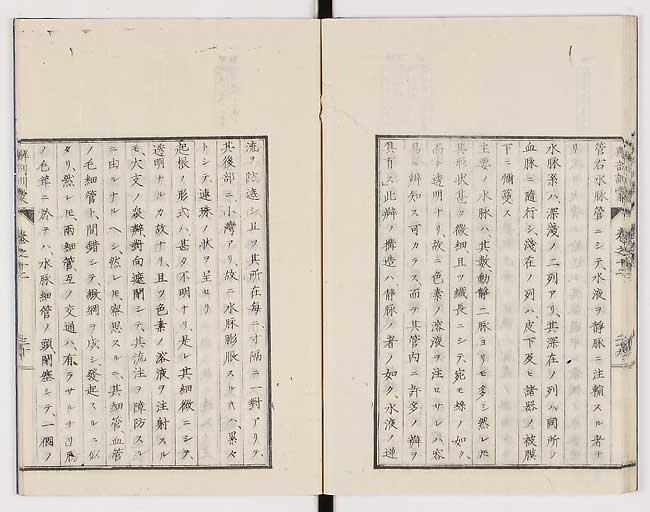 管右水脉管ニシテ、水液ヲ静脉ニ注輸スル者ナ
リ
水脉系ハ、深淺ノ二列アリ、其深在ノ列ハ、同所ノ
血脉ニ隨行シ、淺在ノ列ハ、皮下及ヒ諸器ノ被膜
下ニ彌蔓ス
主要ノ水脉ハ、其數、動静二脉ヨリモ多シ、然レ𪜈
其形狀甚タ微細、且ツ纖長ニシテ、宛モ絲ノ如ク、
而テ透明ナリ、故ニ色素ノ溶液ヲ注セサレハ、容
易ニ辨知スヘカラス、而テ其管内ニ許多ノ瓣ヲ
具有ス、此瓣ノ搆造ハ、静脉ノ者ノ如ク、水液ノ逆
流ヲ防遏シ、且ツ其所在毎ニ、寸隔ニ一對アリ、
其後部ニ、小灣アリ、故ニ水脉膨脹スル𪜈ハ、累々
トシテ連珠ノ狀ヲ呈セリ
起根ノ形式ハ、甚タ不明ナリ、是レ其細微ニシテ、
透明ナルカ故ナリ、且ツ色素ノ溶液ヲ注射スル
モ、大支ノ瓣對向遮閉シテ、其流注ヲ障防スル
ニ由ルナルヘシ、然レ𪜈審思スルニ、其細管、血管
ノ毛細管ト、間錯シテ、緻網ヲ成シ、發起スルニ似
タリ、然レ𪜈兩細管、互ノ交通ハ、有ラサルナリ、
ノ毛茸ニ於テハ、水脉細管ノ頭閉塞シテ、一個ノ
解剖訓蒙 卷之十三